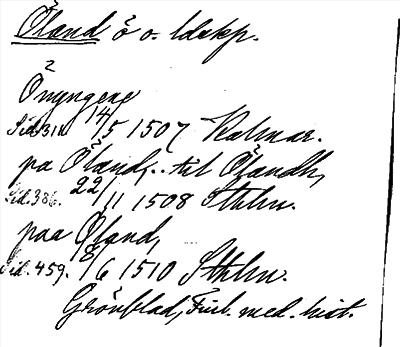 Öland ö o. ldskp.
2
Önyngene
Sid. 311. 14/5 1507 Kalmar.
pa Öland, .. til Ölandh,
Sid. 386. 22/11 1508 Sthlm.
paa Øland,
Sid. 459. 8/6 1510 Sthlm.
Grönblad, Finl. med. hist.